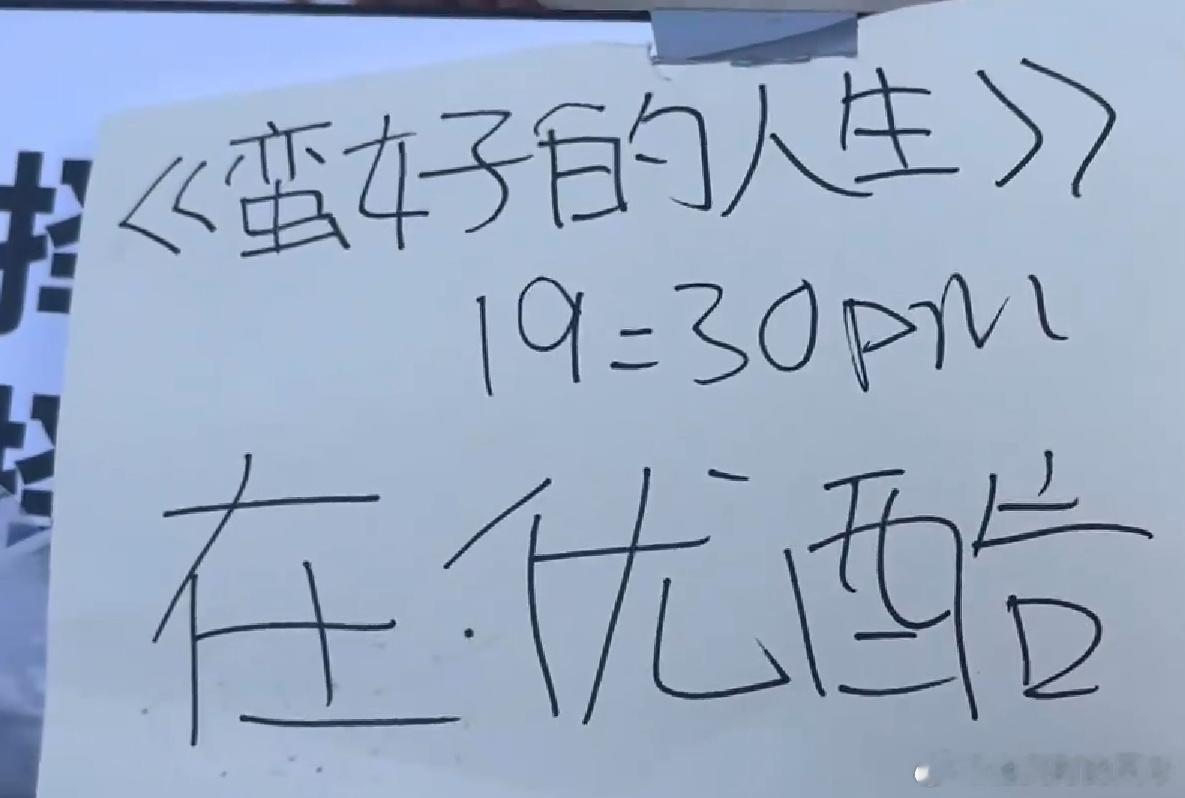 《蛮好的人生》
19:30pm
在.优酷